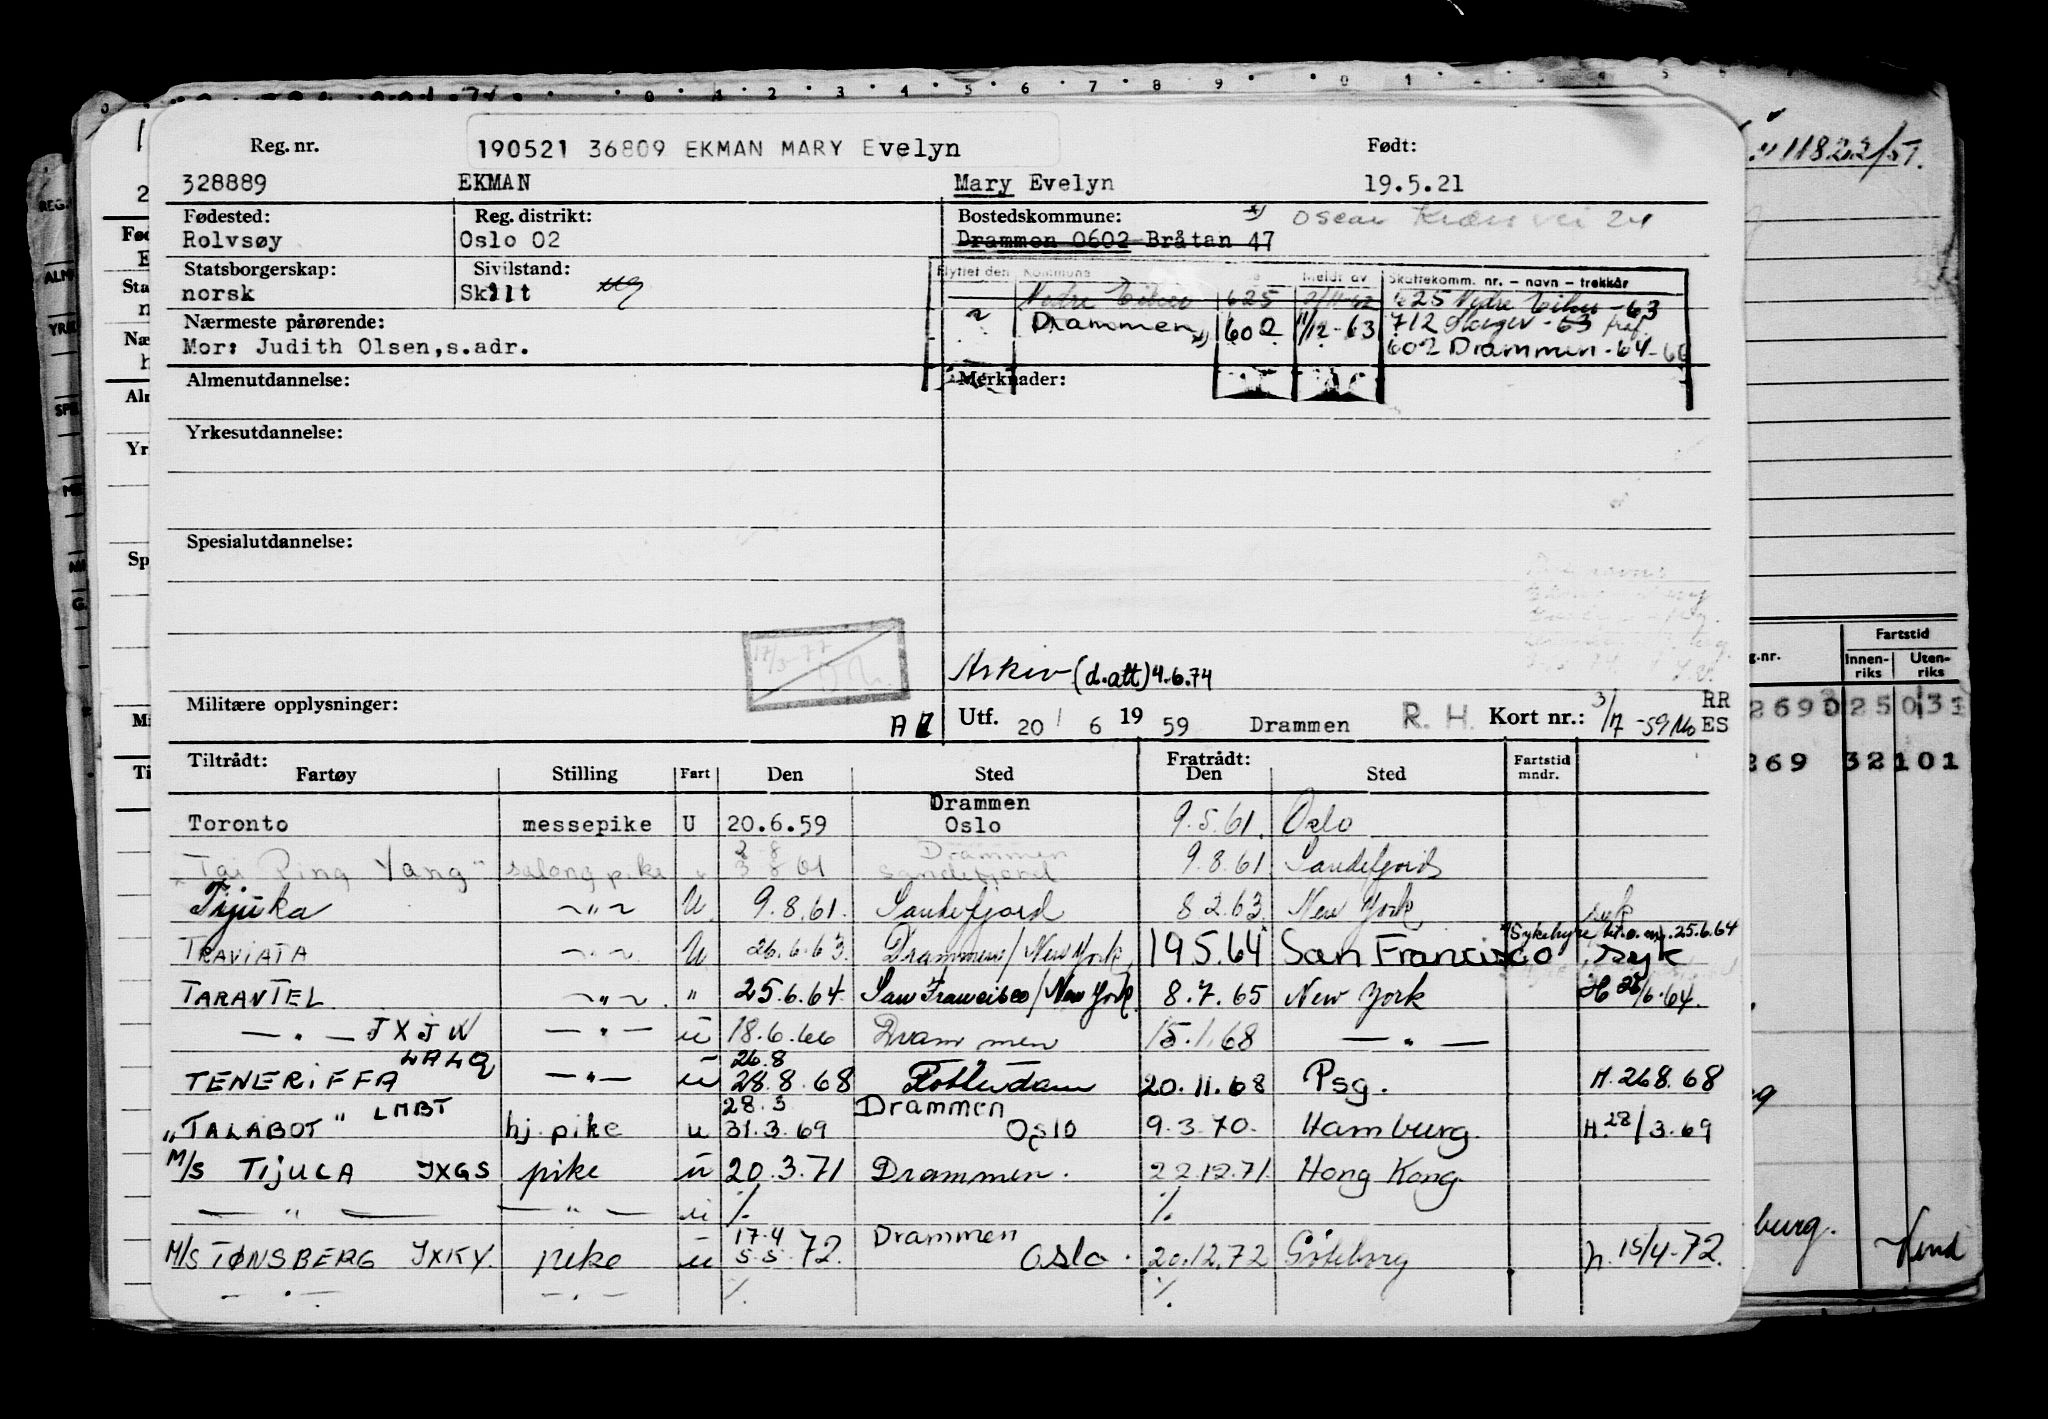 Reg. nr. 190521 36809 EKMAN MARY Evelyn Født:
328889 EKMAN Mary Evelyn 19.5.21
Fødested: Reg. distrikt: Bostedskommune: Oscar Kiærs vei 24
Rolvsøy Oslo 02 Drammen 0602 Bråtan 47
Statsborgerskap: Sivilstand: Flyttet den Kommune Meldt av Skattekomm. nr. - navn - trekkår
norsk Skilt ug Nedre Eiker 625 625 Nedre Eiker -63
Nærmeste pårørende: Drammen 602 11/12-63 712
Mor: Judith Olsen, s.adr. 602 Drammen -64-
Almenutdannelse: Merknader:
Yrkesutdannelse:
Spesialutdannelse:
17/3-77
Arkiv (d.att) 4.6.74
Militære opplysninger: A Utf. 20 / 6 19 59 Drammen R. H. Kort nr.: 3/7-59 RR ES
Tiltrådt: Fratrådt: Fartstid
Fartøy Stilling Fart Den Sted Den Sted mndr.
Drammen
Toronto messepike U 20.6.59 Oslo 9.5.61. Oslo
2 8 Drammen
"Tai Ping Yang" salongpike 3 8 61 Sandefjord 9.8.61 Sandefjord
Tijuka ~"~ U. 9.8.61. Sandefjord 8 2.63. New York syk
TRAVIATA -"- U 26.6.63. Drammen/New York 19.5.64 San Francisco syk
Sykehyre 25.6.64
TARANTEL ~"~ " 25.6.64. San Francisco/New York 8.7.65 New York H 25/6.64.
—"— JXJW —"— u 18.6.66 Drammen 15.1.68 —"—
LALQ 26.8
TENERIFFA —"— u 28.8.68 Rotterdam 20.11.68 Psg. H.268.68
28.3 Drammen
"TALABOT" LMBT hj. pike u 31.3.69 Oslo 9.3.70. Hamburg. H.28/3.69
M/S TIJUCA JXGS pike u 20.3.71 Drammen. 22.12.71. Hong Kong.
—"— —"— u % %
17.4 Drammen
M/S TØNSBERG JXKY. pike u 5.5.72. Oslo. 20.12.72 Göteborg h. 15/4-72.
-"- -"- % %
11822/51.
Fartstid
g.nr. Innen-riks Uten-riks
269
269 32101
burg.
0 1 2 3 4 5 6 7 8 9 0 1